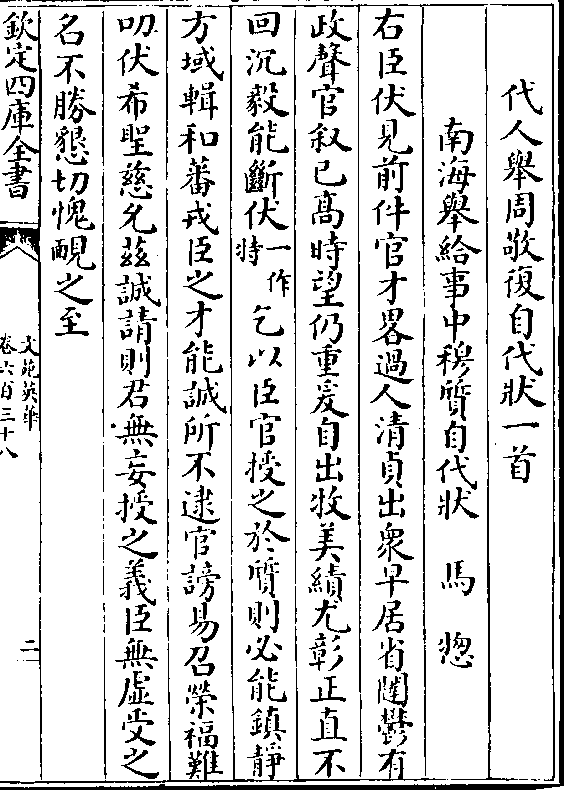 代人舉周敬復自代狀一首
南海舉給事中穆質自代狀　馬揔
右臣伏見前件官才畧過人清貞出衆早居省闥鬱有
政聲官叙已髙時望仍重爰自出牧美績尤彰正直不
回沉毅能斷伏一作特乞以臣官授之於質則必能鎮静
方域輯和蕃戎臣之才能誠所不逮官謗易召榮福難
叨伏希聖慈允兹誠請則君無妄授之義臣無虚受之
名不勝懇切愧靦之至
欽定四庫全書
文苑英華
卷六百三十八
二